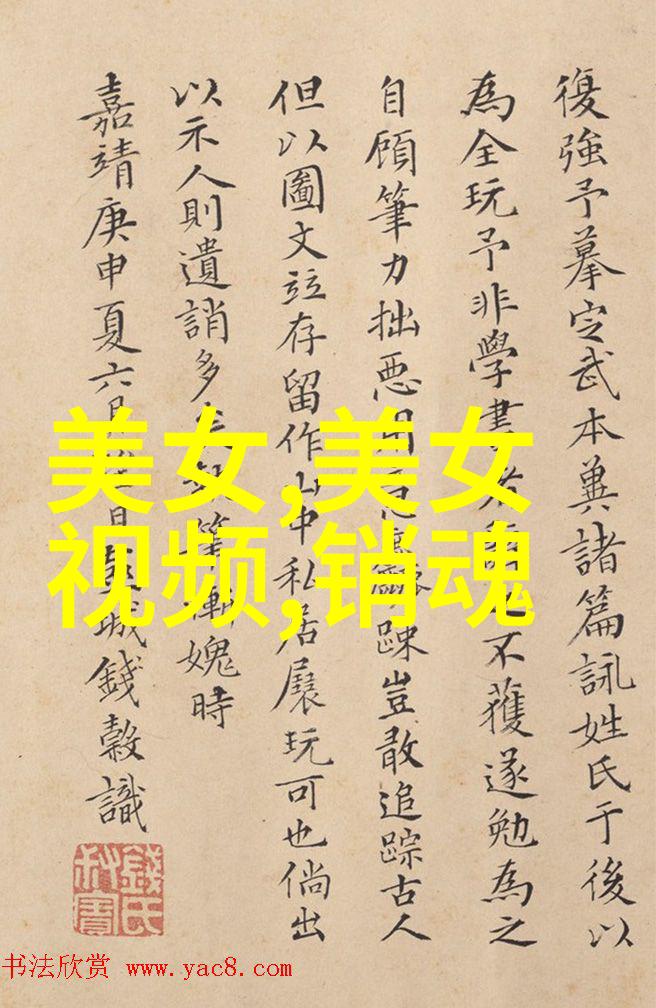 復強予摹定武本兼諸篇詠姓氏于後以
為全玩予非學書者
不獲遂勉為之
自顧筆力拙惡用
踈豈敢追踪古人
但以圖文竝存留作山中私居展玩可也倘出
以示人則遺誚多
媿時
嘉靖庚申夏六月
日
城錢榖識
錢氏
美女,美女
视频,销魂
书法欣赏 www.yac8.com